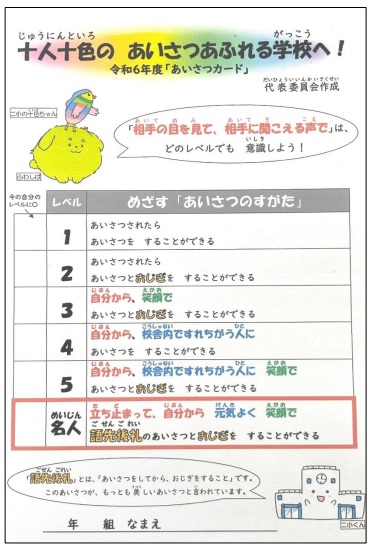 じゅうにんといろ がっこう
十人十色の あいさつあふれる学校へ！
令和6年度「あいさつカード」
だいひょういいんかいさくせい
代表委員会作成
二小の十色ちゃん
ふわしば
あいて め み あいて き こえ
「相手の目を見て、相手に聞こえる声で」は、
いしき
どのレベルでも 意識しよう！
今の自分の
レベルに○
レベル めざす「あいさつのすがた」
1 あいさつされたら
あいさつを することができる
2 あいさつされたら
あいさつとおじぎを することができる
じぶん えがお
3 自分から、笑顔で
あいさつとおじぎを することができる
じぶん こうしゃない ひと
4 自分から、校舎内ですれちがう人に
あいさつを することができる
じぶん こうしゃない ひと えがお
5 自分から、校舎内ですれちがう人に 笑顔で
あいさつとおじぎを することができる
めいじん
名人
た ど じぶん げんき えがお
立ち止まって、自分から 元気よく 笑顔で
ごせん ごれい
語先後礼のあいさつとおじぎを することができる
ごせん ごれい
「語先後礼」とは、「あいさつをしてから、おじぎをすること」です。
うつく
このあいさつが、もっとも美しいあいさつと言われています。
二小くん
年 組 なまえ